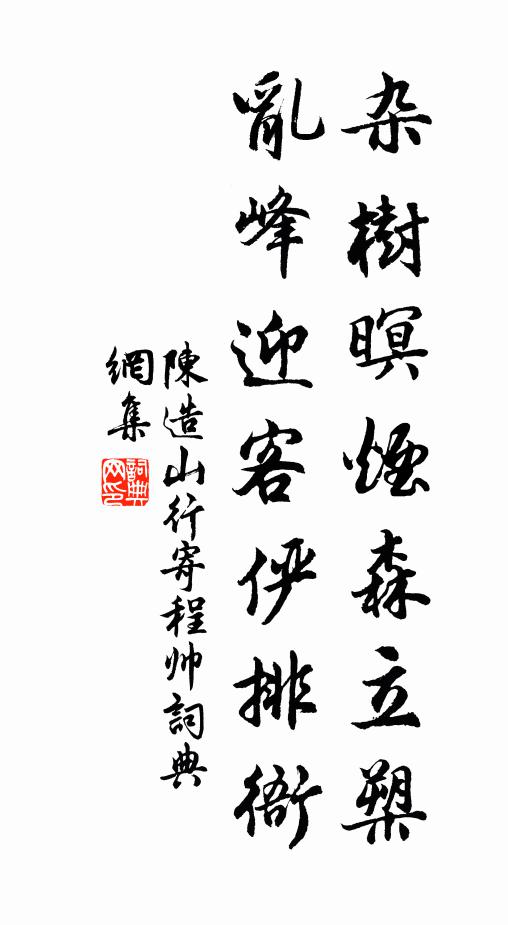 杂樹暝煙森立槊
亂峰迎客俨排衙
陳造山行寄程帅詞典
網集
詞典網印